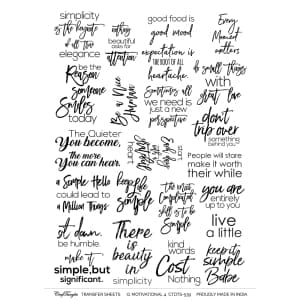 simplicity
is the keynote
of all true
elegance
nothing
beautiful
asks for
attention
good food is
good mood
Every
Moment
matters
expectation is
THE ROOT OF ALL
heartache.
be the
Reason
Someone
Smiles
today
Be a Nice
Human
Sometimes all
we need is
just a new
perspective
do small things
with
great love
don't
trip over
something
behind you
The Quieter
You become,
the more
You can hear.
People will stare
make it worth
their while
a Simple Hello
could lead to
a Million Things
Keep
Life
Simple
The Most
Complicated
Skill is
To Be
Simple
you are
entirely
up to you
sit down.
be humble.
There
is
beauty
in
simplicity
live
a little
make it
simple, but
significant.
kind
words
Cost
Nothing
keep it
simple
Babe
TRANSFER SHEETS
MOTIVATIONAL 4
CTOTS-539
PROUDLY MADE IN INDIA